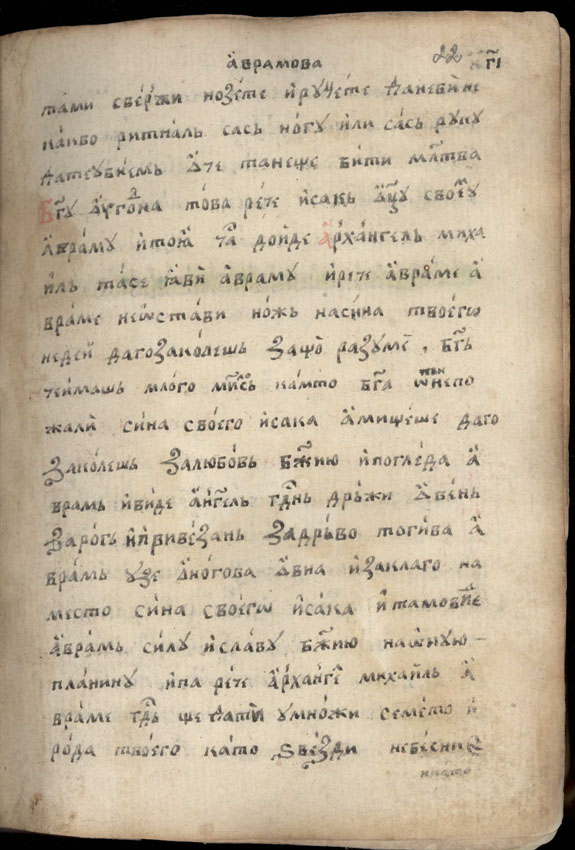 а҆врамова 22 к҃г
тами свержи нозете и҆ рꙋчете да не ви не
каиво ритналь сась ногꙋ или сась рꙋкꙋ
да те ꙋбием а҆ те танеще бити мл҃тва
б҃гꙋ ꙋгодна това рече и҆сакь ѿц҃ꙋ своемꙋ
а҆врамꙋ и҆ тоꙗ ча дойде а҆рха́нгель миха
иль та се ꙗви а҆врамꙋ и҆ рече а҆враме а҆
враме не ѡстави ножь на сина твоегѡ
недей да го заколешь защо разꙋме б҃гь
че имашь млого мисъ като б҃га не по
жали сина своего и҆сака а ми щеше да го
заколешь за любовь б҃жию и҆ погледа а҆
врамь и҆ виде а҆нг҃ель г҃днь дрьжи ѡвень
за рогь и҆ привезань за дрьво тогива а҆
врамь ꙋзе ѻногова ѡвна и҆ закла го на
место сина своегѡ и҆сака и҆ тамо виде
а҆врамь силꙋ и҆ славꙋ б҃жию на ѻнꙋю
планинꙋ и҆ па рече а҆рханг҃е михаиль а҆
враме г҃дь ще да ти ꙋмножи семето и҆
рода твоего като ѕвезди небесни